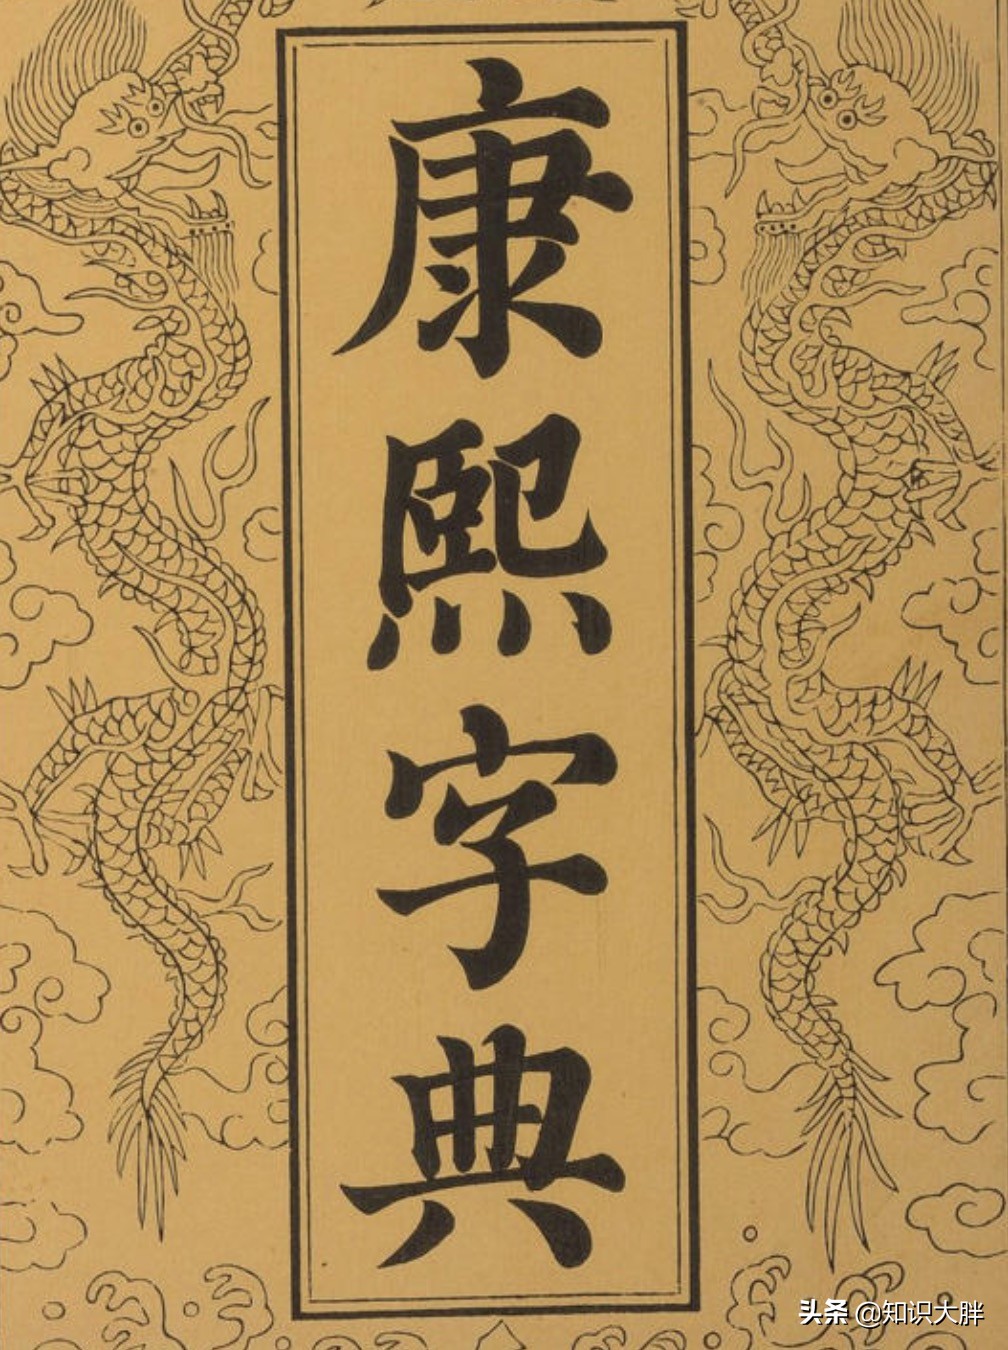 康熙字典
头条 @知识大胖